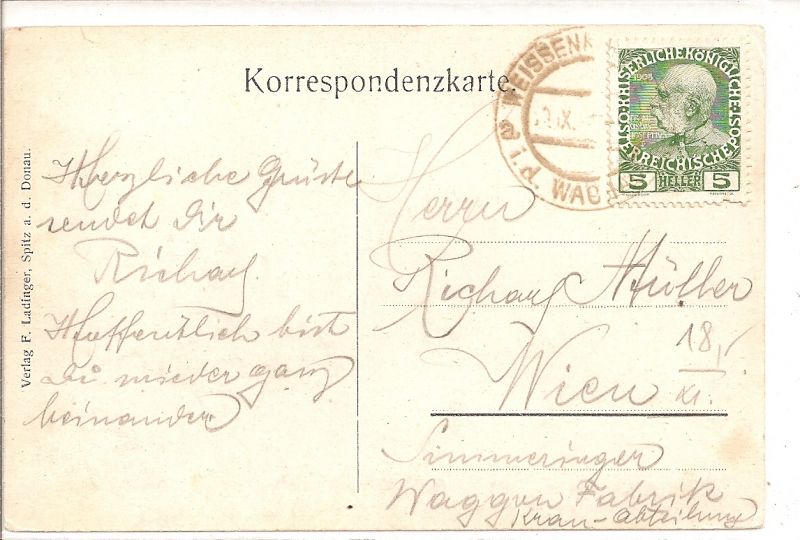 Korrespondenzkarte.
WEISSENK
i. d. WACH
2
IX.
KAISERLICHE KÖNIGLICHE ÖSTERREICHISCHE POST
1908
5 HELLER 5
Verlag F. Ladinger, Spitz a. d. Donau.
Herzliche Grüsse
sendet Dir
Richard
Hoffentlich bist
Du wieder ganz
beinander
Herrn
Richard Müller
Wien
18.
Simmeringer
Waggon Fabrik
Kran-Abteilung